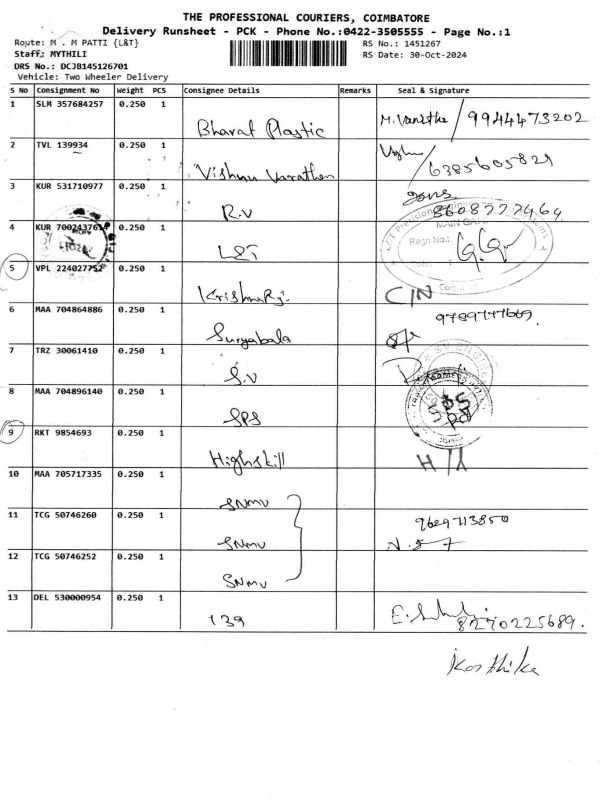 THE PROFESSIONAL COURIERS, COIMBATORE
Delivery Runsheet - PCK - Phone No.:0422-3505555 - Page No.:1
Route: M . M PATTI {L&T} RS No.: 1451267
Staff: MYTHILI RS Date: 30-Oct-2024
DRS No.: DCJB145126701
Vehicle: Two Wheeler Delivery
S No Consignment No Weight PCS Consignee Details Remarks Seal & Signature
1 SLM 357684257 0.250 1 Bharat Plastic M.Vanitha / 9944473202
2 TVL 139934 0.250 1 Vishnu Varathan / 6385605829
3 KUR 531710977 0.250 1 R.V 8608722464
4 KUR 0.250 1 L&T
MAIN GATE
Regn No.:
5 VPL 224027752 0.250 1 KrishnaRj. C/N
6 MAA 704864886 0.250 1 Suryabala 9789777669.
7 TRZ 30061410 0.250 1 S.V
8 MAA 704896140 0.250 1 SPS
9 RKT 9854693 0.250 1 Highskill H/
10 MAA 705717335 0.250 1 SNMV
11 TCG 50746260 0.250 1 SNMV 9629713850
12 TCG 50746252 0.250 1 SNMV
13 DEL 530000954 0.250 1 139 8270225689.
Karthika